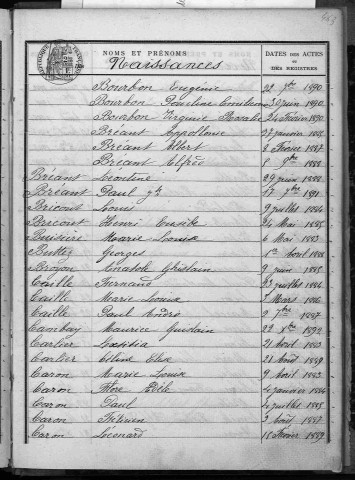 NOMS ET PRÉNOMS DATES DES ACTES
OU
DES REGISTRES
Naissances
Bourbon Eugénie 22 1890
Bourbon Pauline Emilienne 30 juin 1890
Bourbon Virginie 24 février 1890
Bréant Appollonie 27 janvier
Bréant Albert 2 février 1887
Bréant Alfred 8 9bre 1888
Bréant Léontine 29 juin 1888
Bréant Paul 17 7bre 1891
Bricout Louis 9 juillet 1884
Bricout Henri Eusèbe 24 mai 1885
Buisière Marie Louise 6 mai 1883
Buttez Georges 1er avril 1888
Broyon Anatole Ghislain 9 juin 1885
Caille Fernand 23 juillet 1884
Caille Marie Louise 3 mars 1886
Caille Paul André 2 7bre 1887
Cambay Maurice Ghislain 22 Xbre 1892
Carlier Laetitia 21 avril 1883
Carlier Elise 21 avril 1889
Caron Marie Louise 9 avril 1883
Caron Flore Adèle janvier 1884
Caron Paul juillet 1885
Caron 3 août 1887
Caron Léonard 11 février 1889